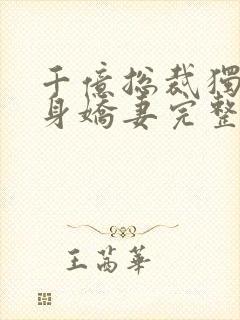 千億总裁獨
身嬌妻完整
王芮華